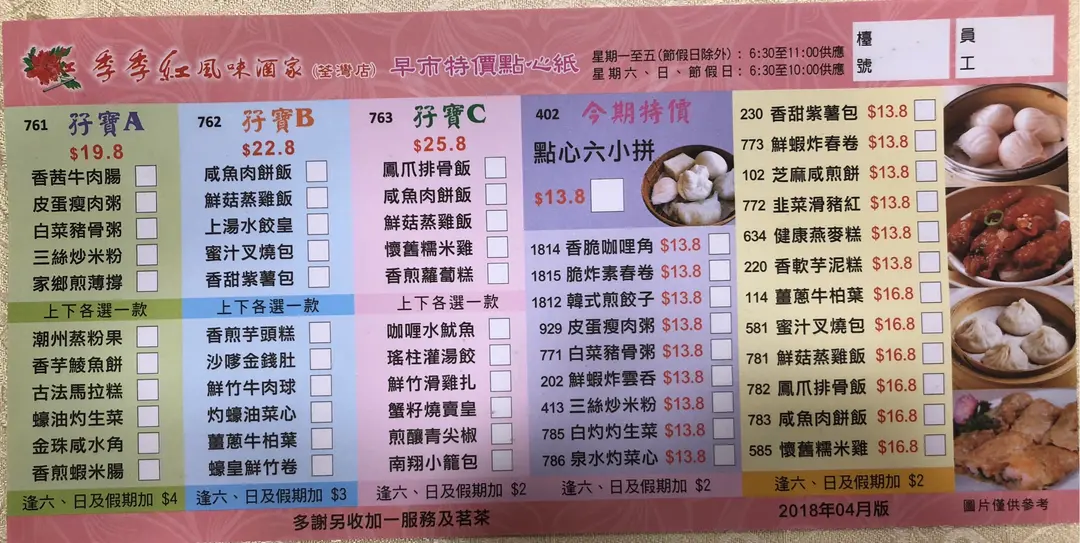 季季紅風味酒家(荃灣店) 早市特價點心紙
星期一至五(節假日除外):6:30至11:00供應
星期六、日、節假日:6:30至10:00供應
檯號
員工
761 孖寶A
$19.8
香茜牛肉腸
皮蛋瘦肉粥
白菜豬骨粥
三絲炒米粉
家鄉煎薄撐
上下各選一款
潮州蒸粉果
香芋鯪魚餅
古法馬拉糕
蠔油灼生菜
金珠咸水角
香煎蝦米腸
逢六、日及假期加 $4
762 孖寶B
$22.8
咸魚肉餅飯
鮮菇蒸雞飯
上湯水餃皇
蜜汁叉燒包
香甜紫薯包
上下各選一款
香煎芋頭糕
沙嗲金錢肚
鮮竹牛肉球
灼蠔油菜心
薑蔥牛柏葉
蠔皇鮮竹卷
逢六、日及假期加 $3
763 孖寶C
$25.8
鳳爪排骨飯
咸魚肉餅飯
鮮菇蒸雞飯
懷舊糯米雞
香煎蘿蔔糕
上下各選一款
咖喱水魷魚
瑤柱灌湯餃
鮮竹滑雞扎
蟹籽燒賣皇
煎釀青尖椒
南翔小籠包
逢六、日及假期加 $2
402 今期特價
點心六小拼
$13.8
1814 香脆咖喱角 $13.8
1815 脆炸素春卷 $13.8
1812 韓式煎餃子 $13.8
929 皮蛋瘦肉粥 $13.8
771 白菜豬骨粥 $13.8
202 鮮蝦炸雲吞 $13.8
413 三絲炒米粉 $13.8
785 白灼灼生菜 $13.8
786 泉水灼菜心 $13.8
逢六、日及假期加 $2
230 香甜紫薯包 $13.8
773 鮮蝦炸春卷 $13.8
102 芝麻咸煎餅 $13.8
772 韭菜滑豬紅 $13.8
634 健康燕麥糕 $13.8
220 香軟芋泥糕 $13.8
114 薑蔥牛柏葉 $16.8
581 蜜汁叉燒包 $16.8
781 鮮菇蒸雞飯 $16.8
782 鳳爪排骨飯 $16.8
783 咸魚肉餅飯 $16.8
585 懷舊糯米雞 $16.8
逢六、日及假期加 $2
多謝另收加一服務及茗茶
2018年04月版
圖片僅供參考